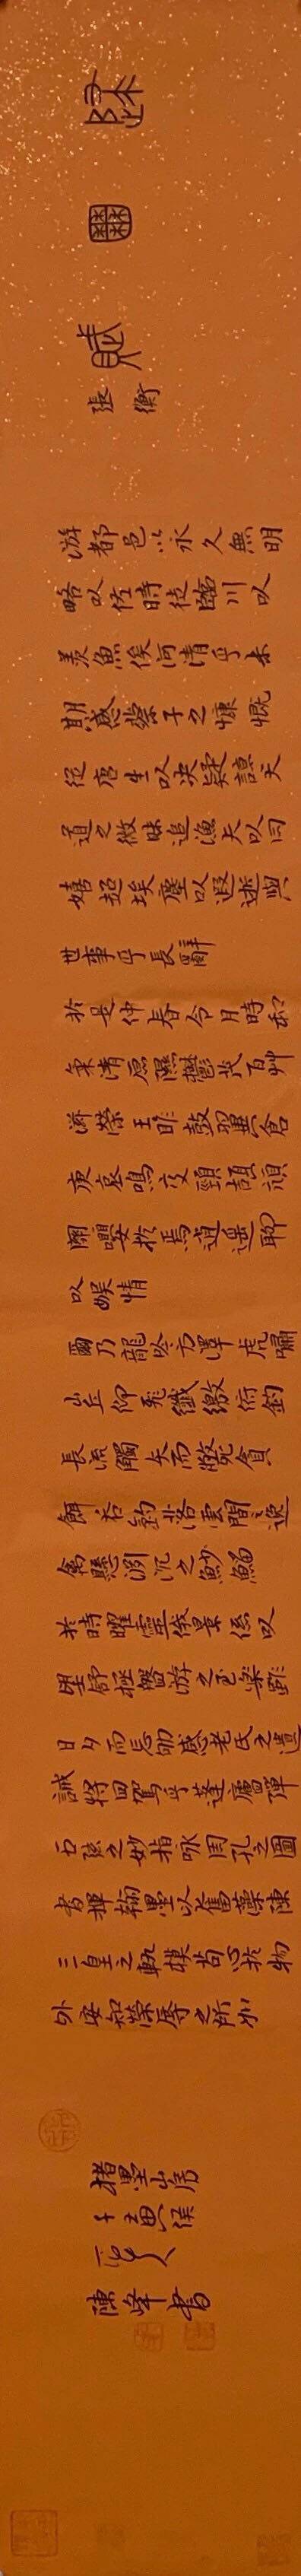 歸田賦
張衡
游都邑以永久無明
略以佐時徒臨川以
羨魚俟河清乎未
期感蔡子之慷慨
從唐生以決疑諒天
道之微昧追漁夫以同
嬉超埃塵以遐逝與
世事乎長辭
於是仲春令月時和
氣清原隰鬱茂百艸
滋榮王雎鼓翼倉
庚哀鳴交頸頡頏
關嚶於焉逍遙聊
以娛情
爾乃龍吟方澤虎嘯
山丘仰飛纖繳俯釣
長流觸矢而斃貪
餌吞鉤落雲間之逸
禽懸淵沉之魦鰡
於時曜靈俄景係以
望舒極盤游之至樂雖
日夕而忘劬感老氏之遺
誡將回駕乎蓬廬彈
五弦之妙指詠周孔之圖
書揮翰墨以奮藻陳
三皇之軌模苟心於物
外安知榮辱之所如
楮墨山房
陳峰書